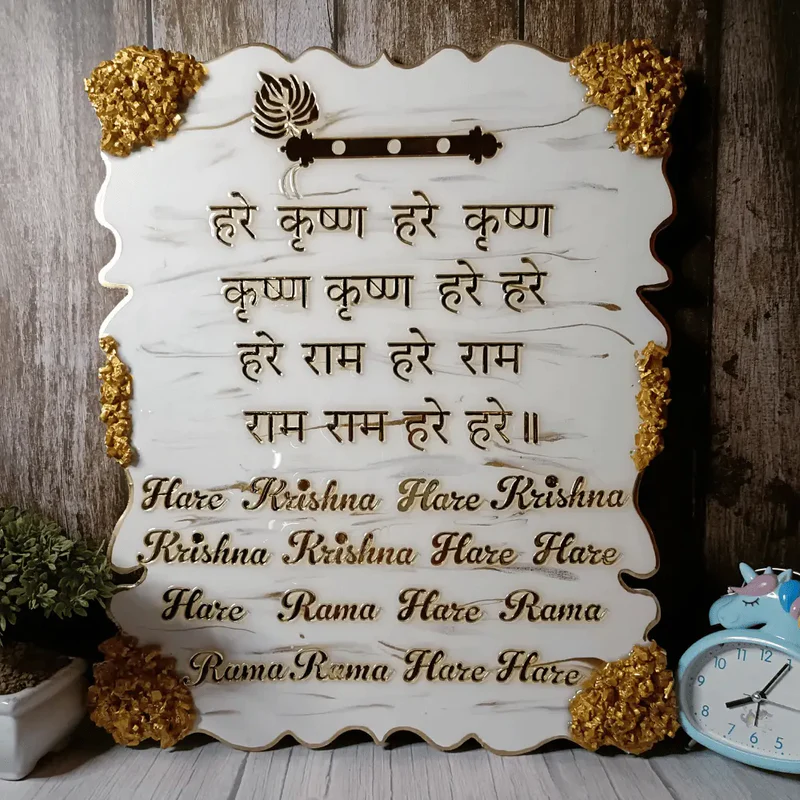 हरे कृष्ण हरे कृष्ण
कृष्ण कृष्ण हरे हरे
हरे राम हरे राम
राम राम हरे हरे॥
Hare Krishna Hare Krishna
Krishna Krishna Hare Hare
Hare Rama Hare Rama
Rama Rama Hare Hare
10 11 12 1
9
8 7 6 5